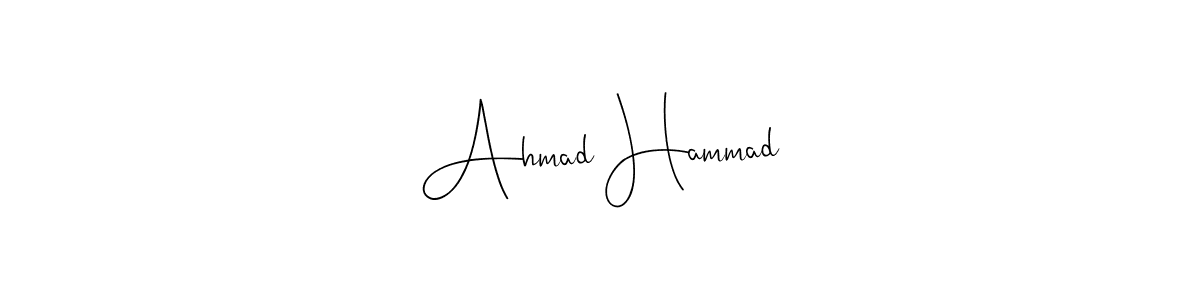 Ahmad Hammad